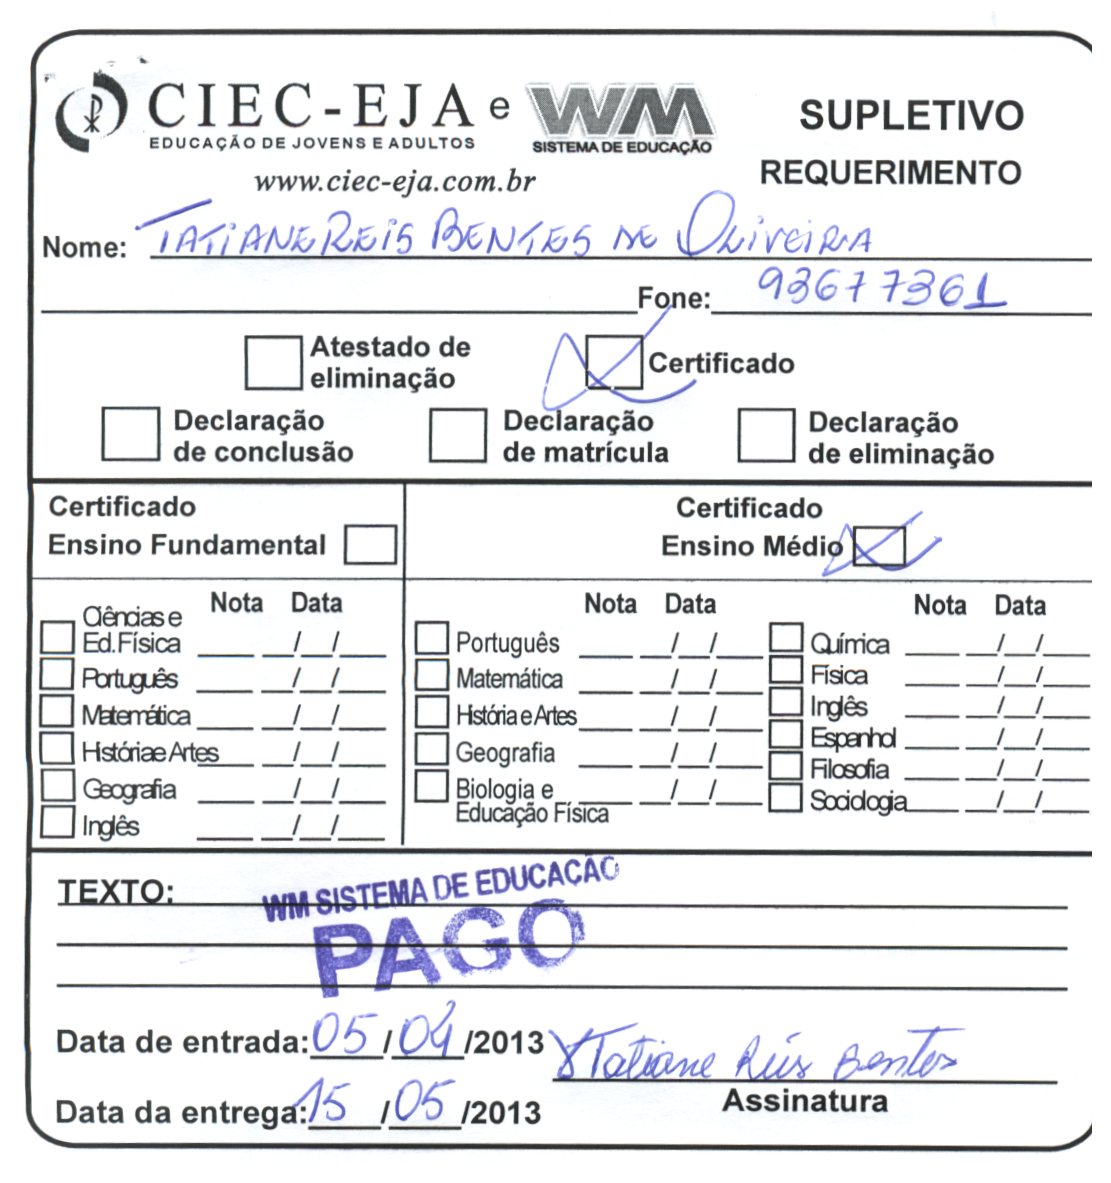 CIEC-EJA e WM SUPLETIVO
EDUCAÇÃO DE JOVENS E ADULTOS SISTEMA DE EDUCAÇÃO
www.ciec-eja.com.br REQUERIMENTO
Nome: TATIANE REIS BENTES DE OLIVEIRA
Fone: 93677361
Atestado de eliminação Certificado
Declaração de conclusão Declaração de matrícula Declaração de eliminação
Certificado Ensino Fundamental
Nota Data
Ciências e
Ed.Física ____ __/__/__
Português ____ __/__/__
Matemática ____ __/__/__
História e Artes ____ __/__/__
Geografia ____ __/__/__
Inglês ____ __/__/__
Certificado
Ensino Médio
Nota Data
Português ____ __/__/__
Matemática ____ __/__/__
História e Artes ____ __/__/__
Geografia ____ __/__/__
Biologia e
Educação Física ____ __/__/__
Nota Data
Química ____ __/__/__
Física ____ __/__/__
Inglês ____ __/__/__
Espanhol ____ __/__/__
Filosofia ____ __/__/__
Sociologia ____ __/__/__
TEXTO:
WM SISTEMA DE EDUCAÇÃO
PAGO
Data de entrada: 05/04/2013 Tatiane Reis Bentes
Data da entrega: 15/05/2013 Assinatura